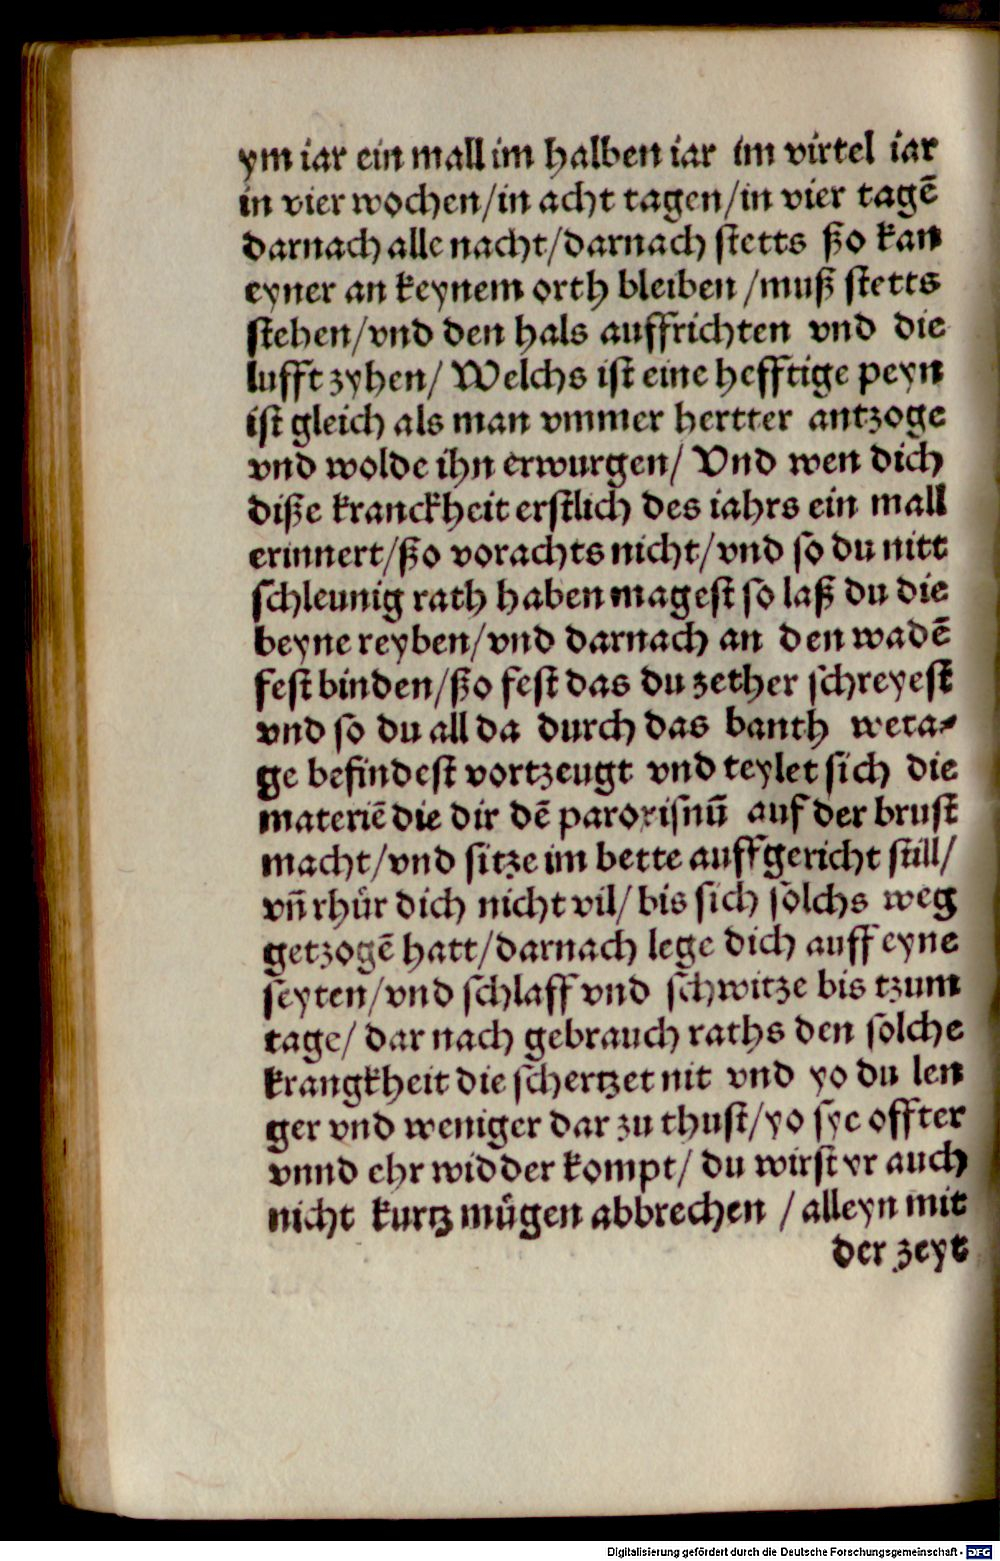 ym iar ein mall im halben iar im virtel iar
in vier wochen/in acht tagen/in vier tagē
darnach alle nacht/darnach stetts ßo kan
eyner an keynem orth bleiben /muß stetts
stehen/vnd den hals auffrichten vnd die
lufft zyhen/ Welchs ist eine hefftige peyn
ist gleich als man vmmer hertter antzoge
vnd wolde ihn erwurgen/ Vnd wen dich
diße kranckheit erstlich des iahrs ein mall
erinnert/ßo vorachts nicht/vnd so du nitt
schleunig rath haben magest so laß du die
beyne reyben/vnd darnach an den wadē
fest binden/ßo fest das du zether schreyest
vnd so du all da durch das banth weta⸗
ge befindest vortzeugt vnd teylet sich die
materiē die dir dē paroxisnū auf der brust
macht/vnd sitze im bette auffgericht still/
vn̄ rhuͤr dich nicht vil/ bis sich solchs weg
getzogē hatt/darnach lege dich auff eyne
seyten/vnd schlaff vnd schwitze bis tzum
tage/ dar nach gebrauch raths den solche
krangkheit die schertzet nit vnd yo du len
ger vnd weniger dar zu thust/yo sye offter
vnnd ehr widder kompt/ du wirst yr auch
nicht kurtz muͤgen abbrechen / alleyn mit
der zeyt
Digitalisierung gefördert durch die Deutsche Forschungsgemeinschaft - DFG